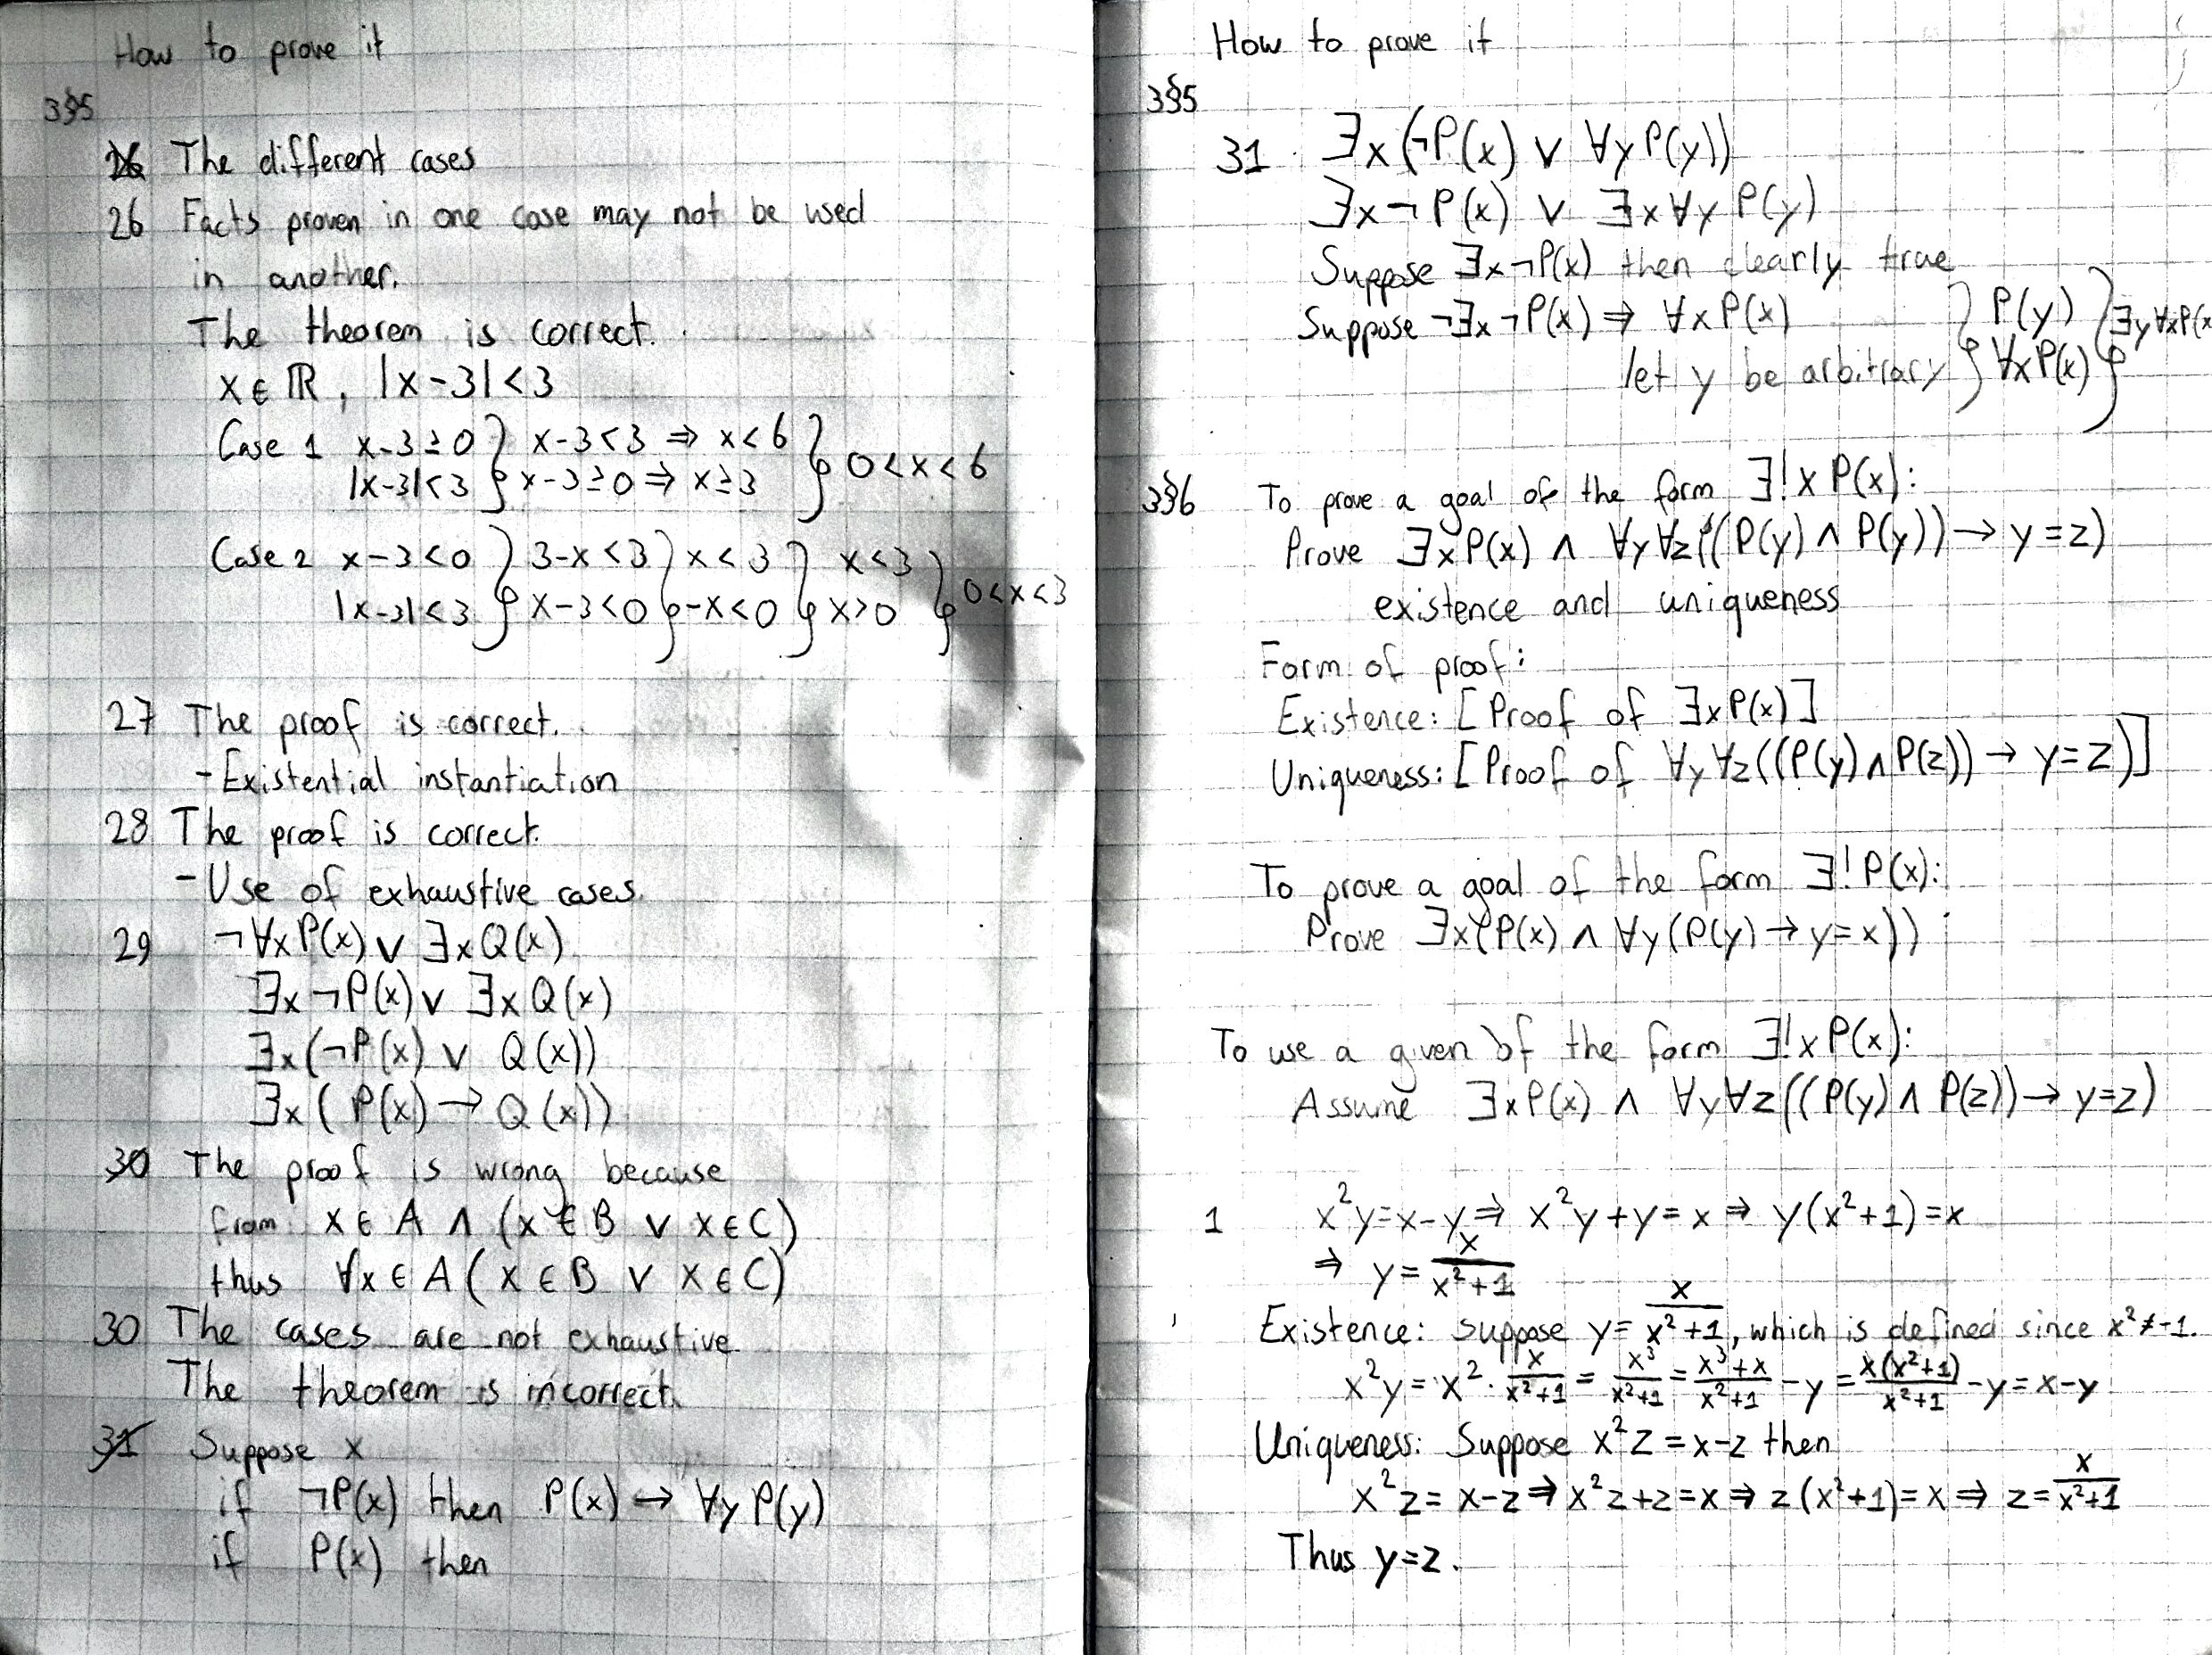 How to prove it
3§5
26 The different cases
26 Facts proven in one case may not be used
in another.
The theorem is correct.
x ∈ ℝ, |x-3|<3
Case 1 x-3≥0 } x-3<3 ⇒ x<6 } 0<x<6
|x-3|<3 } x-3≥0 ⇒ x≥3
Case 2 x-3<0 } 3-x<3 } x<3 } x<3 } 0<x<3
|x-3|<3 } x-3<0 } -x<0 } x>0
27 The proof is correct.
- Existential instantiation
28 The proof is correct.
- Use of exhaustive cases.
29 ¬∀xP(x) ∨ ∃xQ(x)
∃x¬P(x) ∨ ∃xQ(x)
∃x(¬P(x) ∨ Q(x))
∃x(P(x) → Q(x))
30 The proof is wrong because
from x ∈ A ∧ (x ∈ B ∨ x ∈ C)
thus ∀x ∈ A (x ∈ B ∨ x ∈ C)
30 The cases are not exhaustive
The theorem is incorrect.
31 Suppose x
if ¬P(x) then P(x) → ∀y P(y)
if P(x) then
How to prove it
3§5
31. ∃x(¬P(x) ∨ ∀yP(y))
∃x¬P(x) ∨ ∃x∀yP(y)
Suppose ∃x¬P(x) then clearly true
Suppose ¬∃x¬P(x) ⇒ ∀xP(x) } P(y) } ∃y∀xP(x
let y be arbitrary } ∀xP(x)
3§6 To prove a goal of the form ∃!xP(x):
Prove ∃xP(x) ∧ ∀y∀z((P(y) ∧ P(y)) → y=z)
existence and uniqueness
Form of proof:
Existence: [Proof of ∃xP(x)]
Uniqueness: [Proof of ∀y∀z((P(y) ∧ P(z)) → y=z)]
To prove a goal of the form ∃!P(x):
Prove ∃x(P(x) ∧ ∀y(P(y) → y=x))
To use a given of the form ∃!xP(x):
Assume ∃xP(x) ∧ ∀y∀z((P(y) ∧ P(z)) → y=z)
1 x²y=x-y ⇒ x²y+y=x ⇒ y(x²+1)=x
⇒ y = x/(x²+1)
Existence: suppose y = x/(x²+1), which is defined since x²≠-1.
x²y = x² · x/(x²+1) = x³/(x²+1) = (x³+x)/(x²+1) - y = x(x²+1)/(x²+1) - y = x-y
Uniqueness: Suppose x²z=x-z then
x²z = x-z ⇒ x²z+z=x ⇒ z(x²+1)=x ⇒ z = x/(x²+1)
Thus y=z.